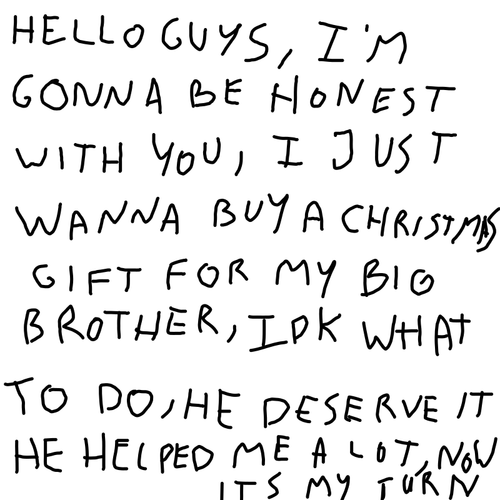 HELLO GUYS, I'M
GONNA BE HONEST
WITH YOU, I JUST
WANNA BUY A CHRISTMAS
GIFT FOR MY BIG
BROTHER, IDK WHAT
TO DO, HE DESERVE IT
HE HELPED ME A LOT, NOW
IT'S MY TURN